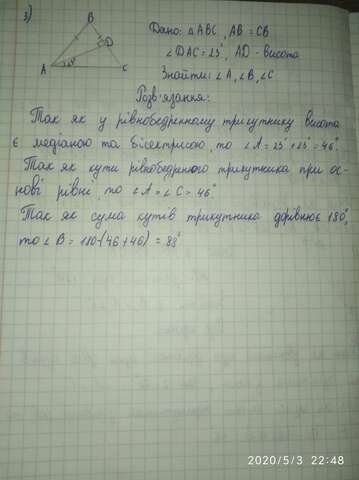 3)
B
D
A
C
23°
Дано: △ABC, AB = CB
∠DAC = 23°, AD - висота
Знайти: ∠A, ∠B, ∠C
Розв'язання:
Так як у рівнобедренному трикутнику висота
є медіаною та бісектрисою, то ∠A = 23° + 23° = 46°.
Так як кути рівнобедреного трикутника при ос-
нові рівні, то ∠A = ∠C = 46°.
Так як сума кутів трикутника дорівнює 180°,
то ∠B = 180-(46+46) = 88°
2020/5/3 22:48